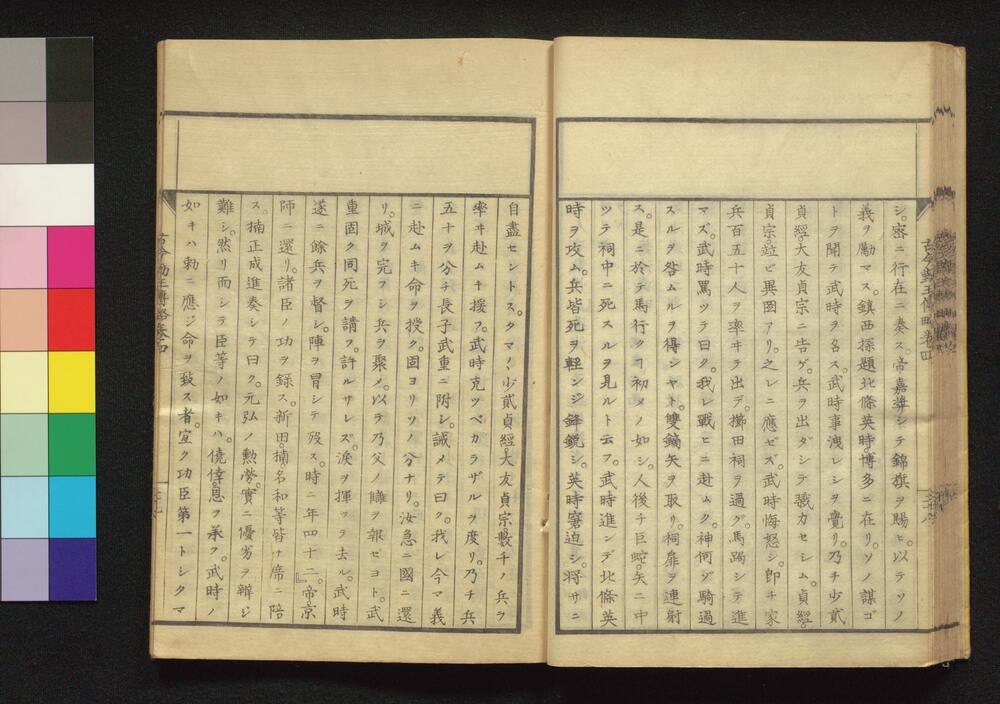 シ。密ニ行在ニ奏ス。帝嘉奬シテ錦旗ヲ賜ヒ。以テソノ
義ヲ勵マス。鎮西探題北條英時。博多ニ在リ。ソノ謀ゴ
トヲ聞テ武時ヲ召ス。武時事洩レシヲ覺リ。乃チ少貳
貞經。大友貞宗ニ告ゲ。兵ヲ出ダシテ戮力セシム。貞經。
貞宗。竝ビ異圖アリ。之レニ應ゼズ。武時悔怒シ。卽チ家
兵百五十人ヲ率ヰテ出デ。櫛田祠ヲ過グ。馬跼シテ進
マズ。武時罵ツテ曰ク。我レ戰ヒニ赴ムク。神何ゾ騎過
スルヲ咎ムルヲ得ンヤト。雙鏑矢ヲ取リ。祠扉ヲ連射
ス。是ニ於テ馬行クヿ初メノ如シ。人後チ巨蛇。矢ニ中
ツテ祠中ニ死スルヲ見ルト云フ。武時進ンデ北條英
時ヲ攻ム。兵皆死ヲ輕ンジ鋒鋭シ。英時窘迫シ。將サニ
古今勤王傳略卷四
自盡セントス。タマ〱少貳貞經。大友貞宗。數千ノ兵ヲ
率ヰ赴ムキ援フ。武時克ツベカラザルヲ度リ。乃チ兵
五十ヲ分チ長子武重ニ附シ。誡メテ曰ク。我レ今マ義
ニ赴ムキ命ヲ授ク。固ヨリソノ分ナリ。汝急ニ國ニ還
リ。城ヲ完フシ兵ヲ聚メ。以テ乃父ノ讎ヲ報ゼヨト。武
重固ク同死ヲ請フ。許ルサレズ。涙ヲ揮ツテ去ル。武時
遂ニ餘兵ヲ督シ。陣ヲ冒シテ歿ス。時ニ年四十二。』帝京
師ニ還リ。諸臣ノ功ヲ錄ス。新田。楠。名和等皆ナ席ニ陪
ス。楠正成進奏シテ曰ク。元弘ノ勲勞。實ニ優劣ヲ辨ジ
難シ。然リ而シテ臣等ノ如キハ。僥倖。恩ヲ承フ。武時ノ
如キハ勅ニ應ジ命ヲ致ス者。宜ク功臣第一トシタマ
古今勤王傳略卷四